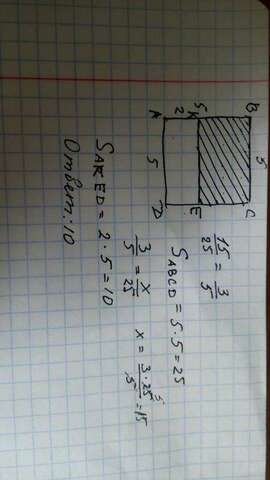 B 5 C
5
K E
2
A 5 D
15/25 = 3/5
S_ABCD = 5·5 = 25
3/5 = x/25 x = 3·25⁵/5 = 15
S_AKED = 2·5 = 10
Ответ: 10